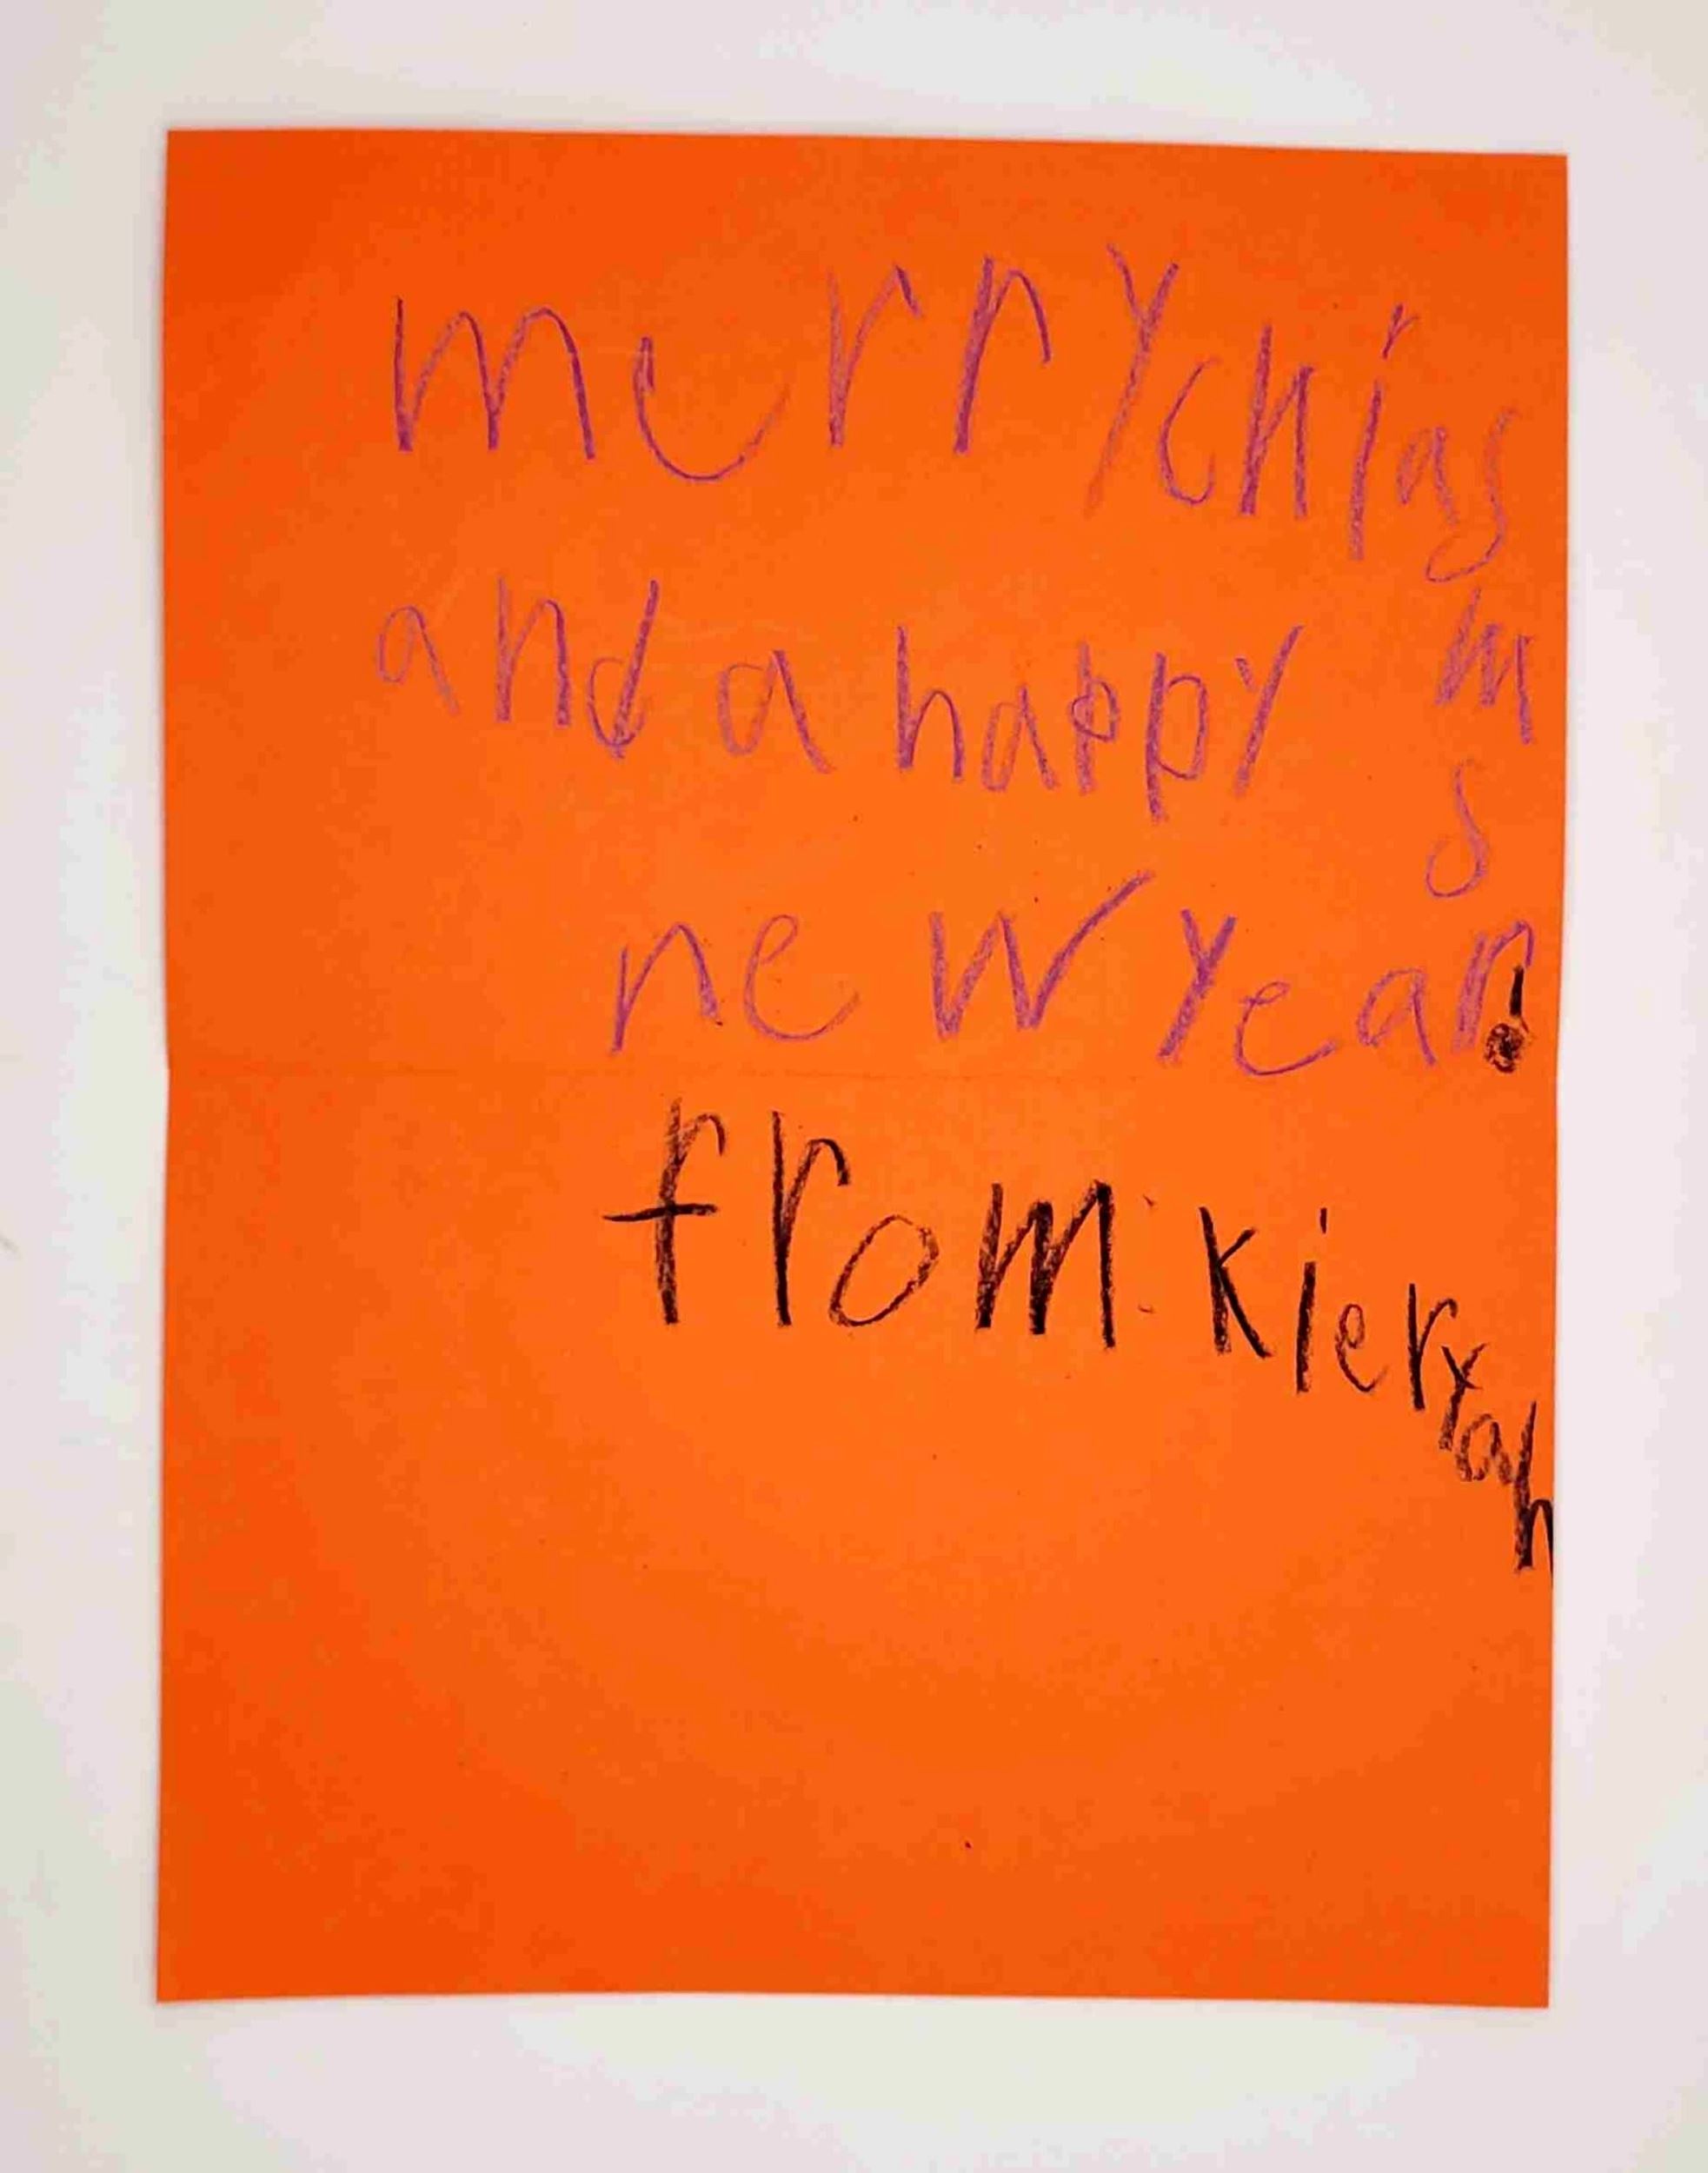 merry chiasms
and a happy
new year!
from: Kieryah